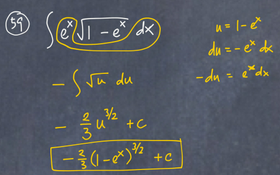 59 ∫ e^x √(1 − e^x) dx
u = 1 − e^x
du = −e^x dx
−du = e^x dx
− ∫ √u du
− 2/3 u^(3/2) + c
− 2/3 (1 − e^x)^(3/2) + c